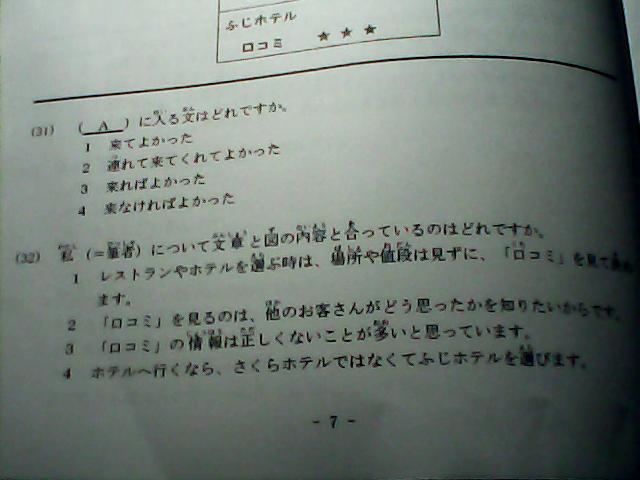 ふじホテル
口コミ ★ ★ ★
(31) ( A )に入る文はどれですか。
1 来てよかった
2 連れて来てくれてよかった
3 来ればよかった
4 来なければよかった
(32) 私(=筆者)について文章と図の内容と合っているのはどれですか。
1 レストランやホテルを選ぶ時は、場所や値段は見ずに、「口コミ」を見て
ます。
2 「口コミ」を見るのは、他のお客さんがどう思ったかを知りたいからです。
3 「口コミ」の情報は正しくないことが多いと思っています。
4 ホテルへ行くなら、さくらホテルではなくてふじホテルを選びます。
- 7 -